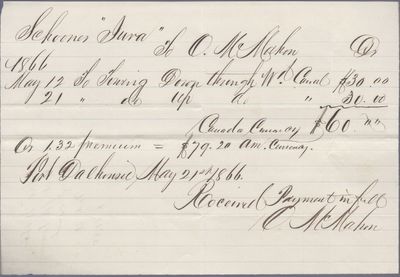 Schooner "Jura"
To O. McMahon Dr
1866
May 12 To Towing Down through Wd. Canal $30.00
21 " do up do " 30.00
Canada Currency $60.""
Or 1.32 premium = $79.20 Am. Currency.
Port Dalhousie, May 21st 1866.
Received Payment in full
O McMahon